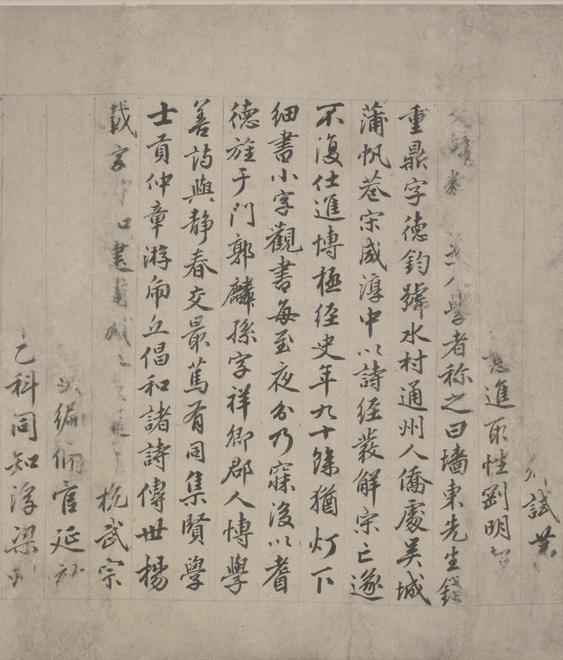 試
進取性劉明
人學者称之曰墻東先生錢
重鼎字德鈞號水村通州人僑處吴城
蒲帆巷宋咸淳中以詩經發解宗亡遂
不復仕進博極經史年九十餘猶灯下
細書小字觀書每至夜分乃寐後以耆
德旌于門郭麟孫字祥卿郡人博學
善詩與靜春交最篤有同集賢學
士貢仲章游甫丘倡和諸詩傳世楊
載字 杭武宗
編脩官延祐
乙科同知浮梁州